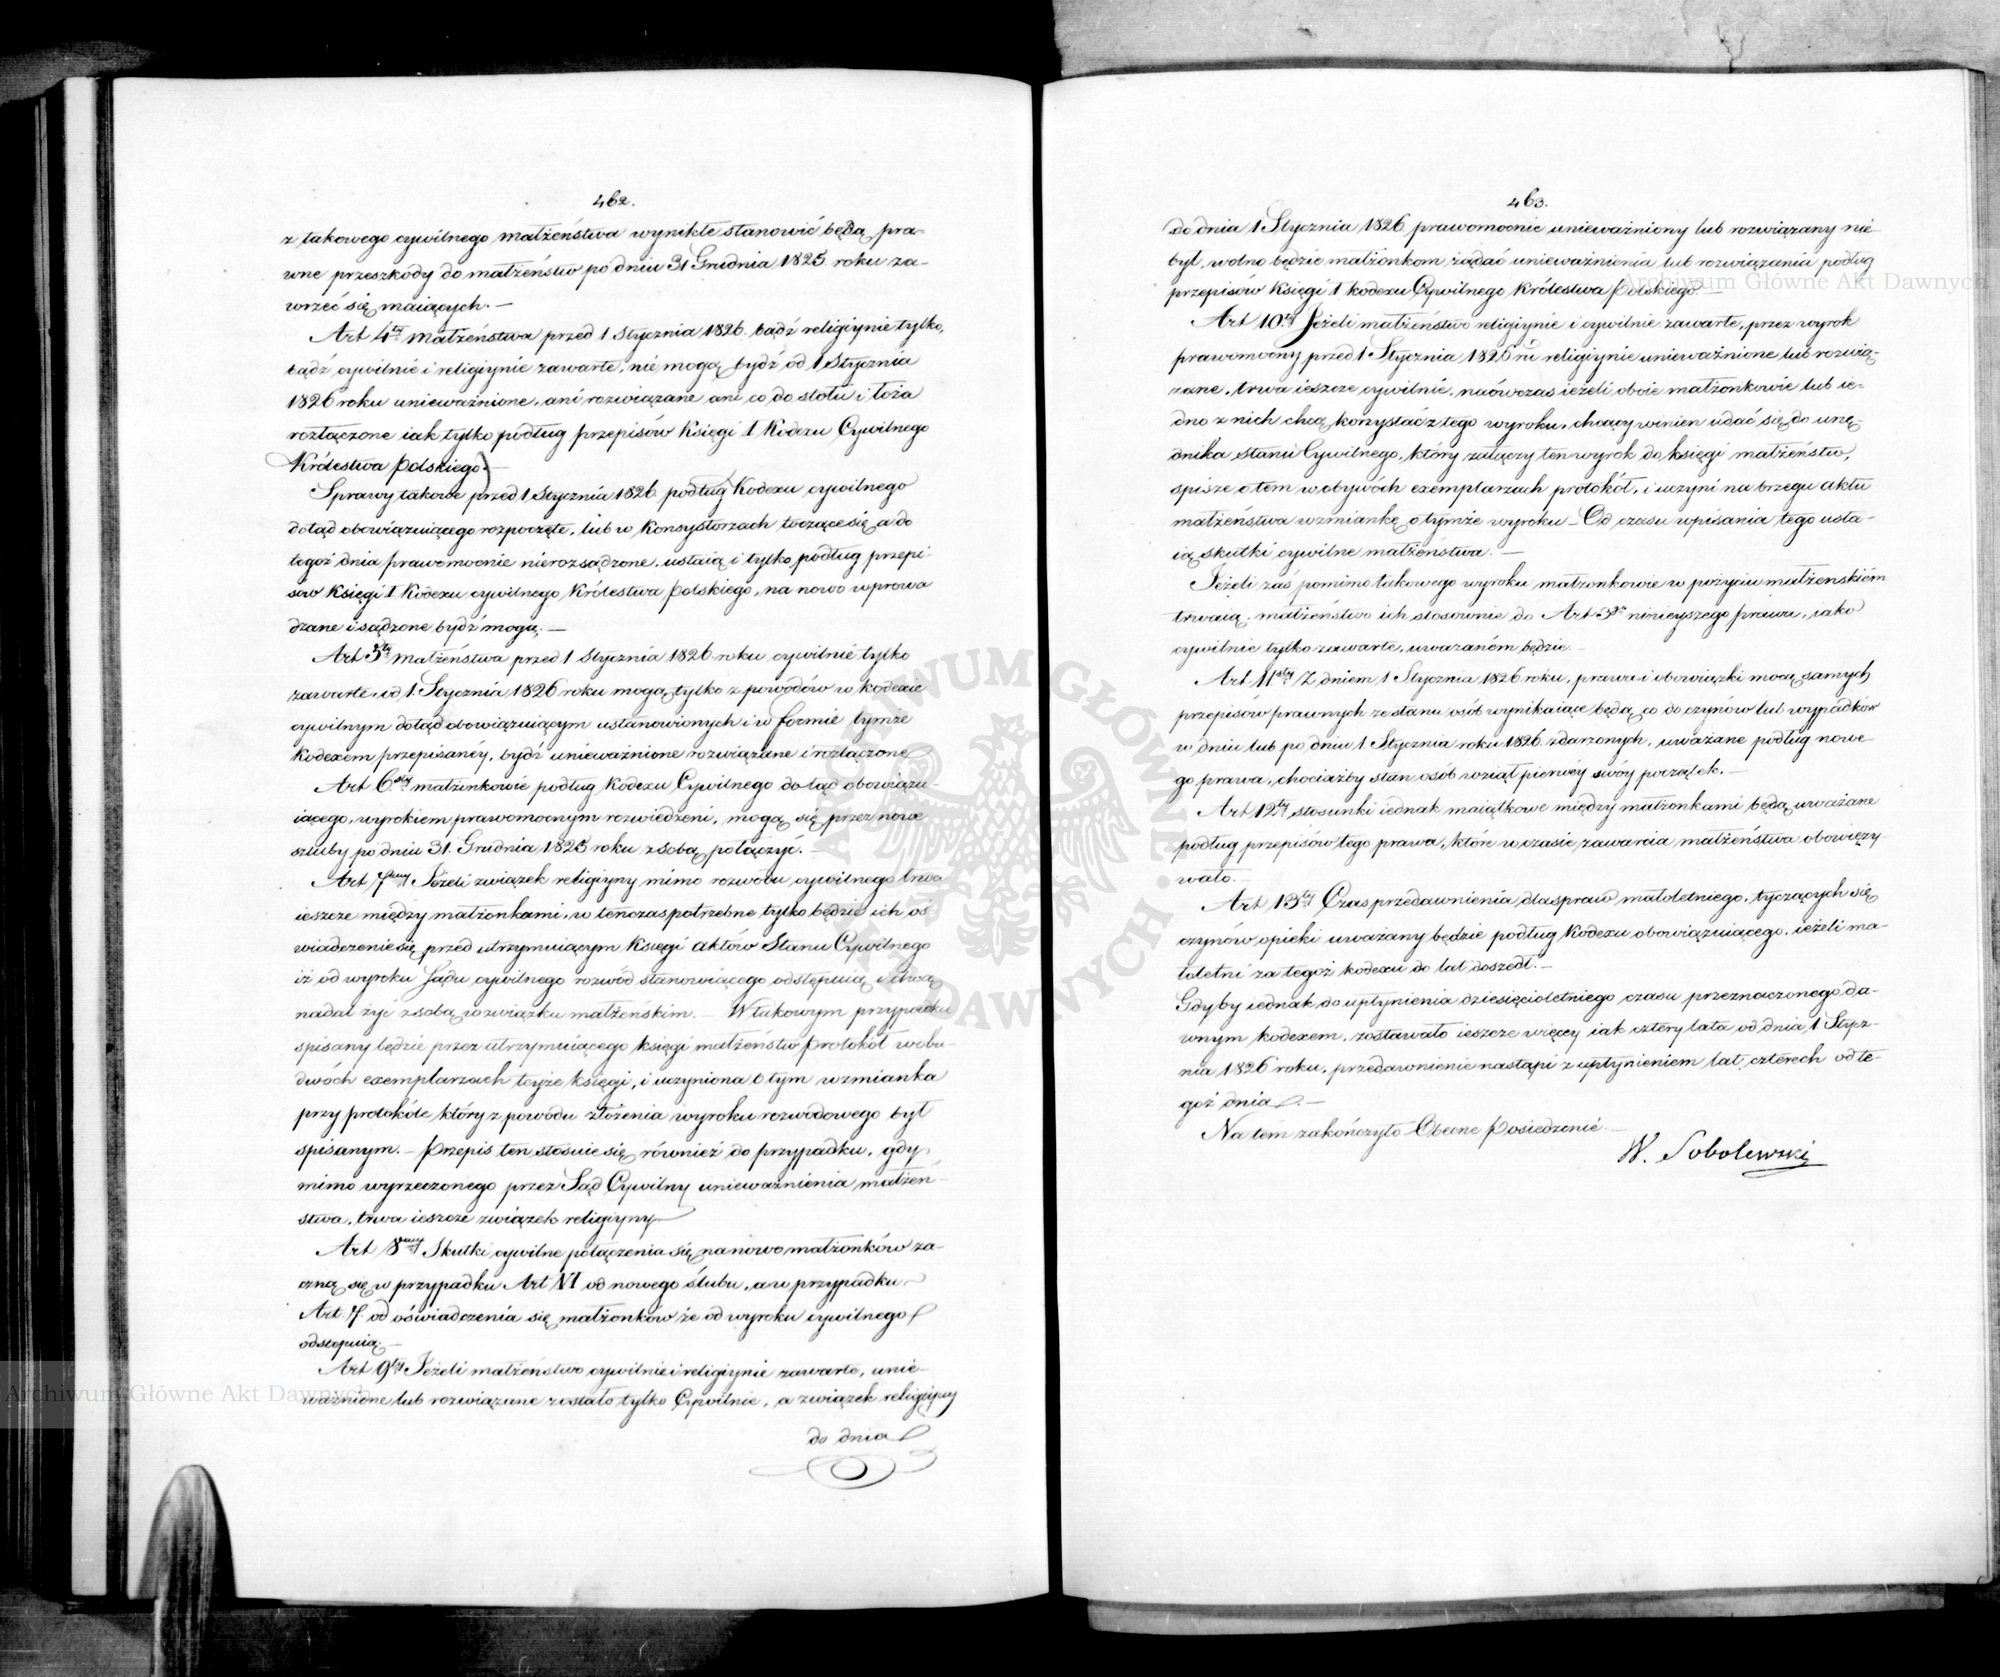 462.
z takowego cywilnego małżeństwa wynikłe stanowić będą pra-
wne przeszkody do małżeństw po dniu 31 Grudnia 1825 roku za-
wrzeć się maiących. —
Art 4ty Małżeństwa przed 1 Stycznia 1826. bądź religiynie tylko,
bądź cywilnie i religiynie zawarte, nie mogą bydź od 1 Stycznia
1826 roku unieważnione, ani rozwiązane ani co do stołu i łoża
rozłączone iak tylko podług przepisów Księgi I Kodexu Cywilnego
Królestwa Polskiego. —
Sprawy takowe przed 1 Stycznia 1826 podług Kodexu cywilnego
dotąd obowiązuiącego rozpoczęte, lub w Konsystorzach toczące się, a do
tegoż dnia prawomocnie nierozsądzone, ustaią i tylko podług przepi-
sów Księgi I Kodexu cywilnego Królestwa Polskiego, na nowo wprowa
dzane i sądzone bydź mogą. —
Art 5ty Małżeństwa przed 1 Stycznia 1826 roku cywilnie tylko
zawarte, od 1 Stycznia 1826 roku mogą tylko z powodów w kodexie
cywilnym dotąd obowiązuiącym ustanowionych i w formie tymże
Kodexem przepisaney, bydź unieważnione rozwiązane i rozłączone
Art 6sty Małżonkowie podług Kodexu Cywilnego dotąd obowiązu-
iącego, wyrokiem prawomocnym rozwiedzeni, mogą się przez nowe
szluby po dniu 31. Grudnia 1825 roku z sobą połączyć. —
Art 7my Jeżeli związek religiyny mimo rozwodu cywilnego trwa
ieszcze między małżonkami, w tenczas potrzebne tylko będzie ich oś
wiadczenie się, przed utrzymuiącym Księgi Aktów Stanu Cywilnego
iż od wyroku Sądu cywilnego rozwód stanowiącego odstępuią i chcą
nadal żyć z sobą w związku małżeńskim. — W takowym przypadku
spisany będzie przez utrzymuiącego księgi małżeństw Protokół w obu-
dwóch exemplarzach teyże księgi, i uczyniona o tym wzmianka
przy protokóle który z powodu złożenia wyroku rozwodowego był
spisanym. — Przepis ten stosuie się również do przypadku, gdy
mimo wyrzeczonego przez Sąd Cywilny unieważnienia małżeń-
stwa, trwa ieszcze związek religiyny
Art 8my Skutki cywilne połączenia się na nowo małżonków za-
czną się w przypadku Art VI od nowego ślubu, a w przypadku
Art 7. od oświadczenia się małżonków że od wyroku cywilnego
odstępuią. —
Art 9ty Jeżeli małżeństwo cywilnie i religiynie zawarte, unie-
ważnione lub rozwiązane zostało tylko Cywilnie, a związek religiyny
do dnia
463.
do dnia 1 Stycznia 1826 prawomocnie unieważniony lub rozwiązany nie
był, wolno będzie małżonkom żądać unieważnienia lub rozwiązania podług
przepisów Księgi I kodexu Cywilnego Królestwa Polskiego. —
Art 10ty Jeżeli małżeństwo religiynie i cywilnie zawarte, przez wyrok
prawomocny przed 1 Stycznia 1826 ru religiynie unieważnione lub rozwią-
zane, trwa ieszcze cywilnie, naówczas ieżeli oboie małżonkowie lub ie-
dno z nich chcą korzystać z tego wyroku, chcący winien udać się do urzę-
dnika Stanu Cywilnego, który załączy ten wyrok do księgi małżeństw,
spisze o tem w obydwóch exemplarzach protokół, i uczyni na brzegu Aktu
małżeństwa wzmiankę o tymże wyroku — Od czasu wpisania tego usta-
ią skutki cywilne małżeństwa. —
Jeżeli zaś pomimo takowego wyroku małżonkowie w pożyciu małżenskiém
trwaią, małżeństwo ich stosownie do Art 3go ninieyszego prawa, iako
cywilnie tylko zawarte, uważaném będzie. —
Art 11sty Z dniem 1 Stycznia 1826 roku, prawa i obowiązki mocą samych
przepisów prawnych ze stanu osób wynikaiące będą, co do czynów lub wypadków
w dniu lub po dniu 1 Stycznia roku 1826. zdarzonych, uważane podług nowe
go prawa, chociażby stan osób wziął pierwéy swóy początek. —
Art 12ty Stosunki iednak maiątkowe między małżonkami będą uważane
podług przepisów tego prawa, które w czasie zawarcia małżeństwa obowięzy
wało. —
Art 13ty Czas przedawnienia dla spraw małoletniego, tyczących się
czynów opieki uważany będzie podług Kodexu obowiązuiącego, ieżeli ma-
łoletni za tegoż kodexu do lat doszedł. —
Gdyby iednak do upłynienia dziesięcioletniego czasu przeznaczonego da-
wnym kodexem, zostawało ieszcze więcey iak cztery lata od dnia 1 Stycz-
nia 1826 roku, przedawnienie nastąpi z upłynieniem lat czterech od te-
goż dnia. —
Na tem zakończyło Obecne Posiedzenie. —
W. Sobolewski
Archiwum Główne Akt Dawnych
Archiwum Główne Akt Dawnych
ARCHIWUM GŁÓWNE AKT DAWNYCH